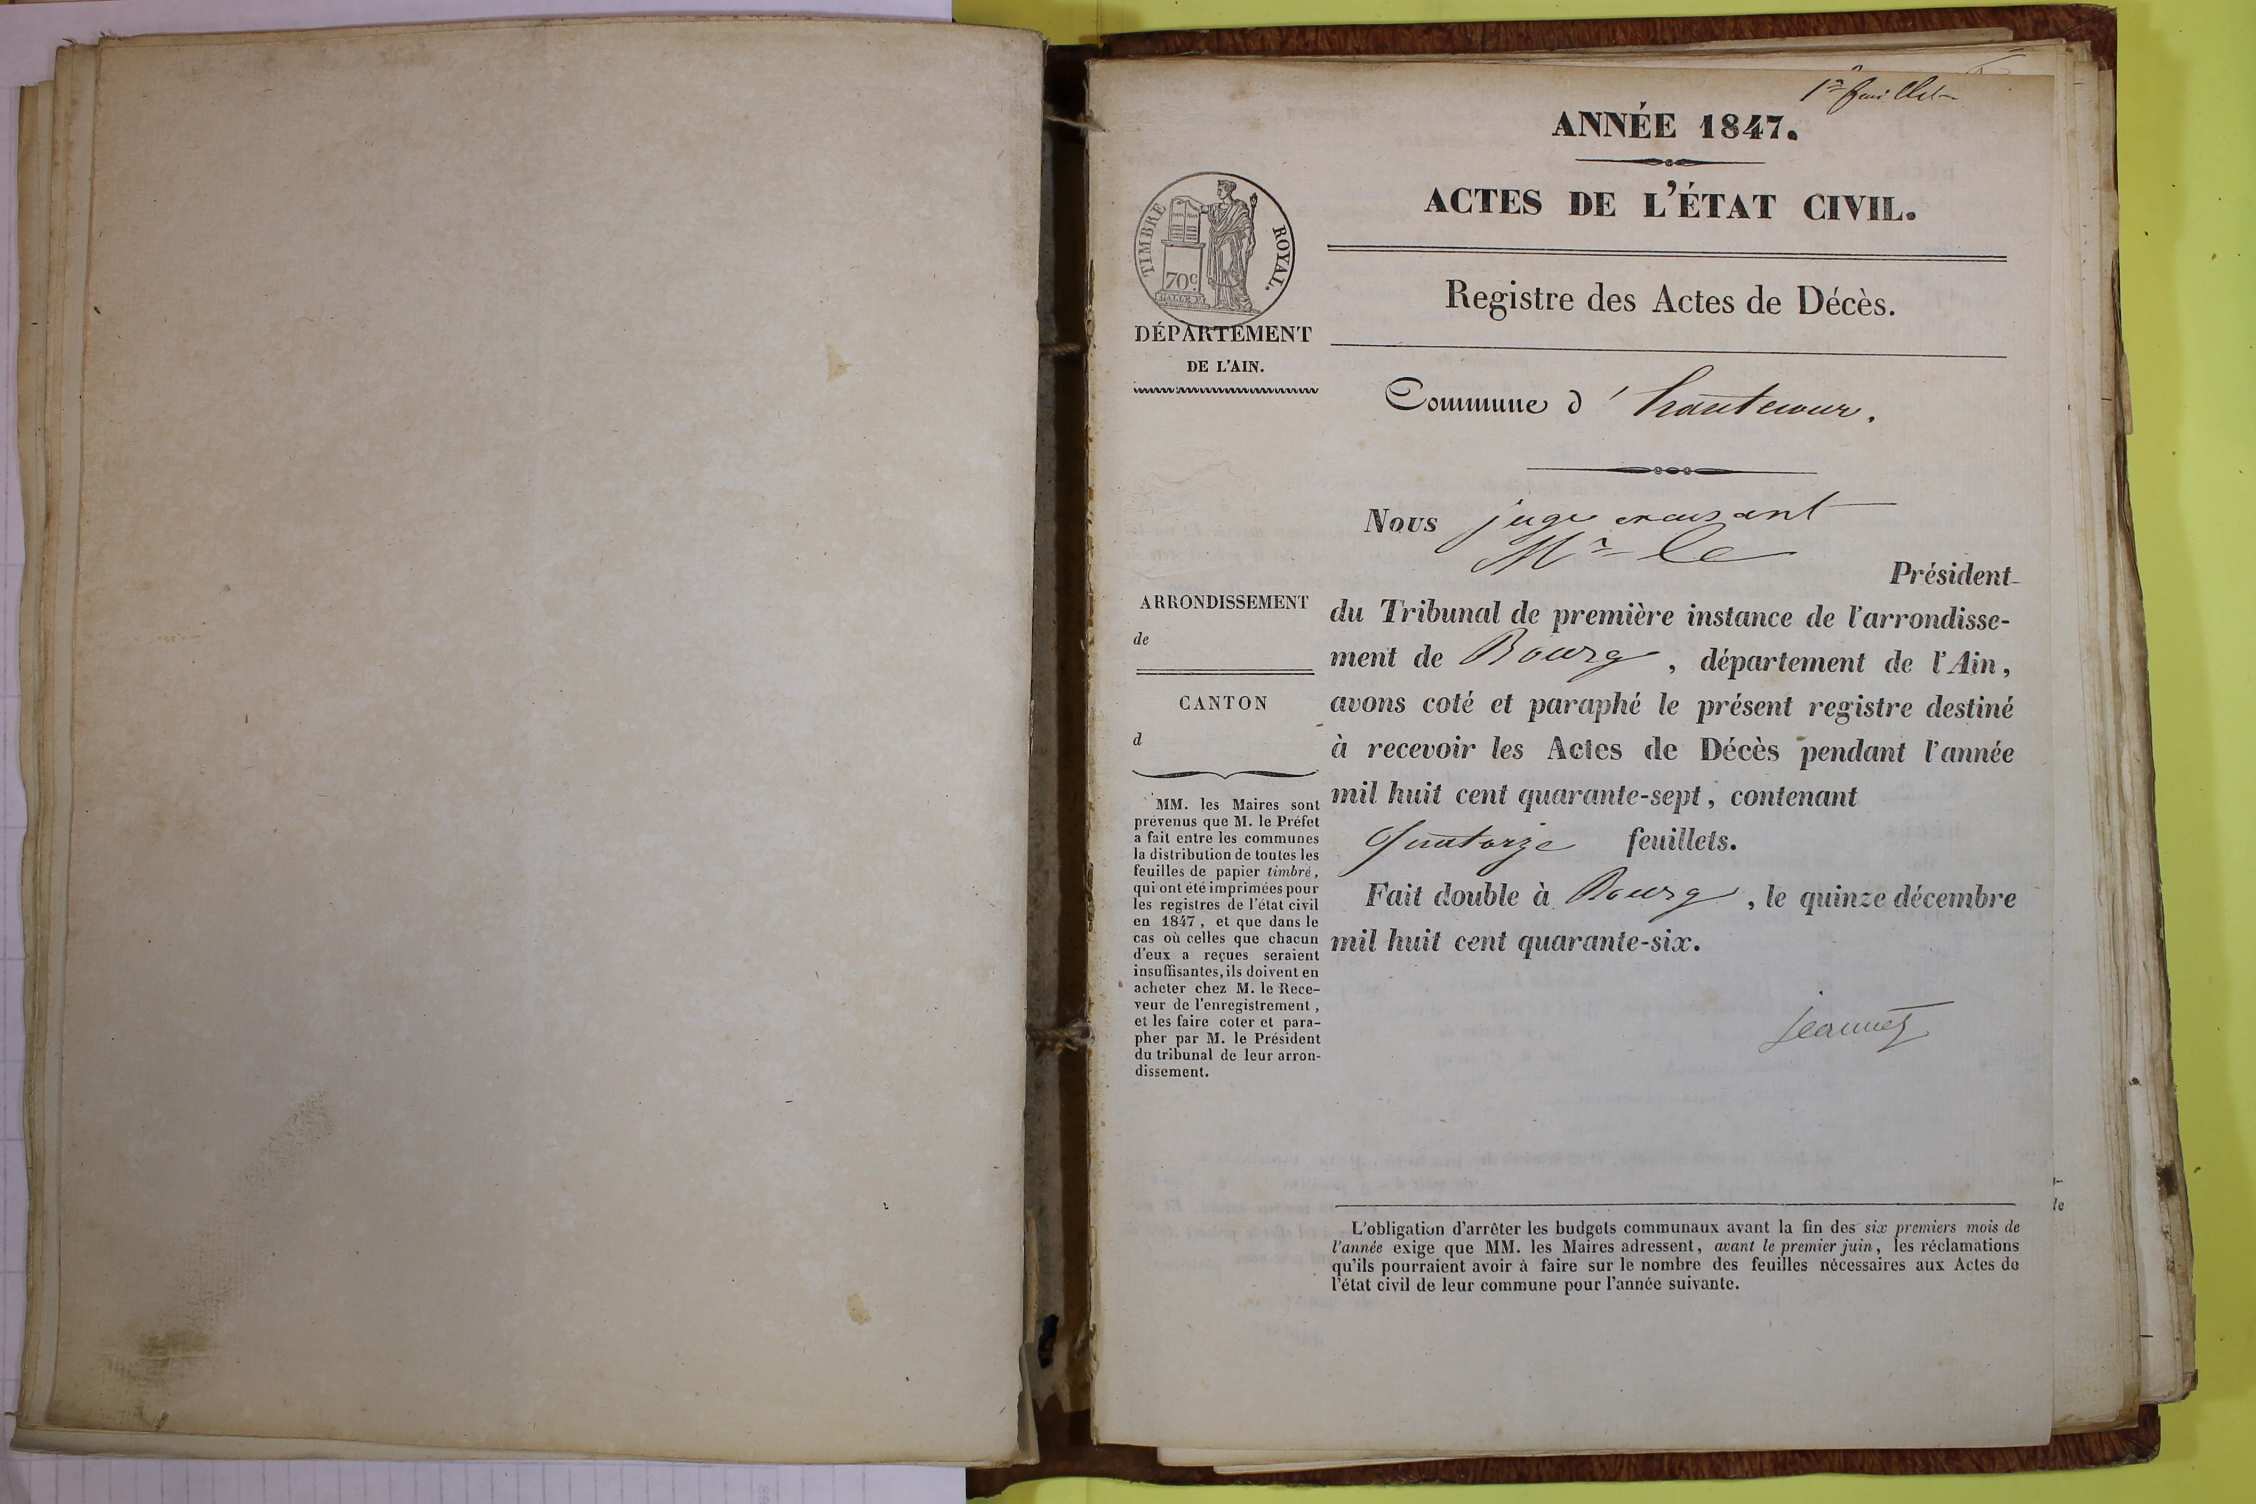 1er feuillet
ANNÉE 1847.
ACTES DE L'ÉTAT CIVIL.
Registre des Actes de Décès.
TIMBRE ROYAL.
70c
DÉPARTEMENT
DE L'AIN.
Commune d'hautecour.
Nous juge
Mr le
Président
du Tribunal de première instance de l'arrondisse-
ment de Bourg, département de l'Ain,
avons coté et paraphé le présent registre destiné
à recevoir les Actes de Décès pendant l'année
mil huit cent quarante-sept, contenant
Quatorze feuillets.
Fait double à Bourg, le quinze décembre
mil huit cent quarante-six.
Jeannet
ARRONDISSEMENT
de
CANTON
d
MM. les Maires sont
prévenus que M. le Préfet
a fait entre les communes
la distribution de toutes les
feuilles de papier timbré,
qui ont été imprimées pour
les registres de l'état civil
en 1847, et que dans le
cas où celles que chacun
d'eux a reçues seraient
insuffisantes, ils doivent en
acheter chez M. le Rece-
veur de l'enregistrement,
et les faire coter et para-
pher par M. le Président
du tribunal de leur arron-
dissement.
L'obligation d'arrêter les budgets communaux avant la fin des six premiers mois de
l'année exige que MM. les Maires adressent, avant le premier juin, les réclamations
qu'ils pourraient avoir à faire sur le nombre des feuilles nécessaires aux Actes de
l'état civil de leur commune pour l'année suivante.